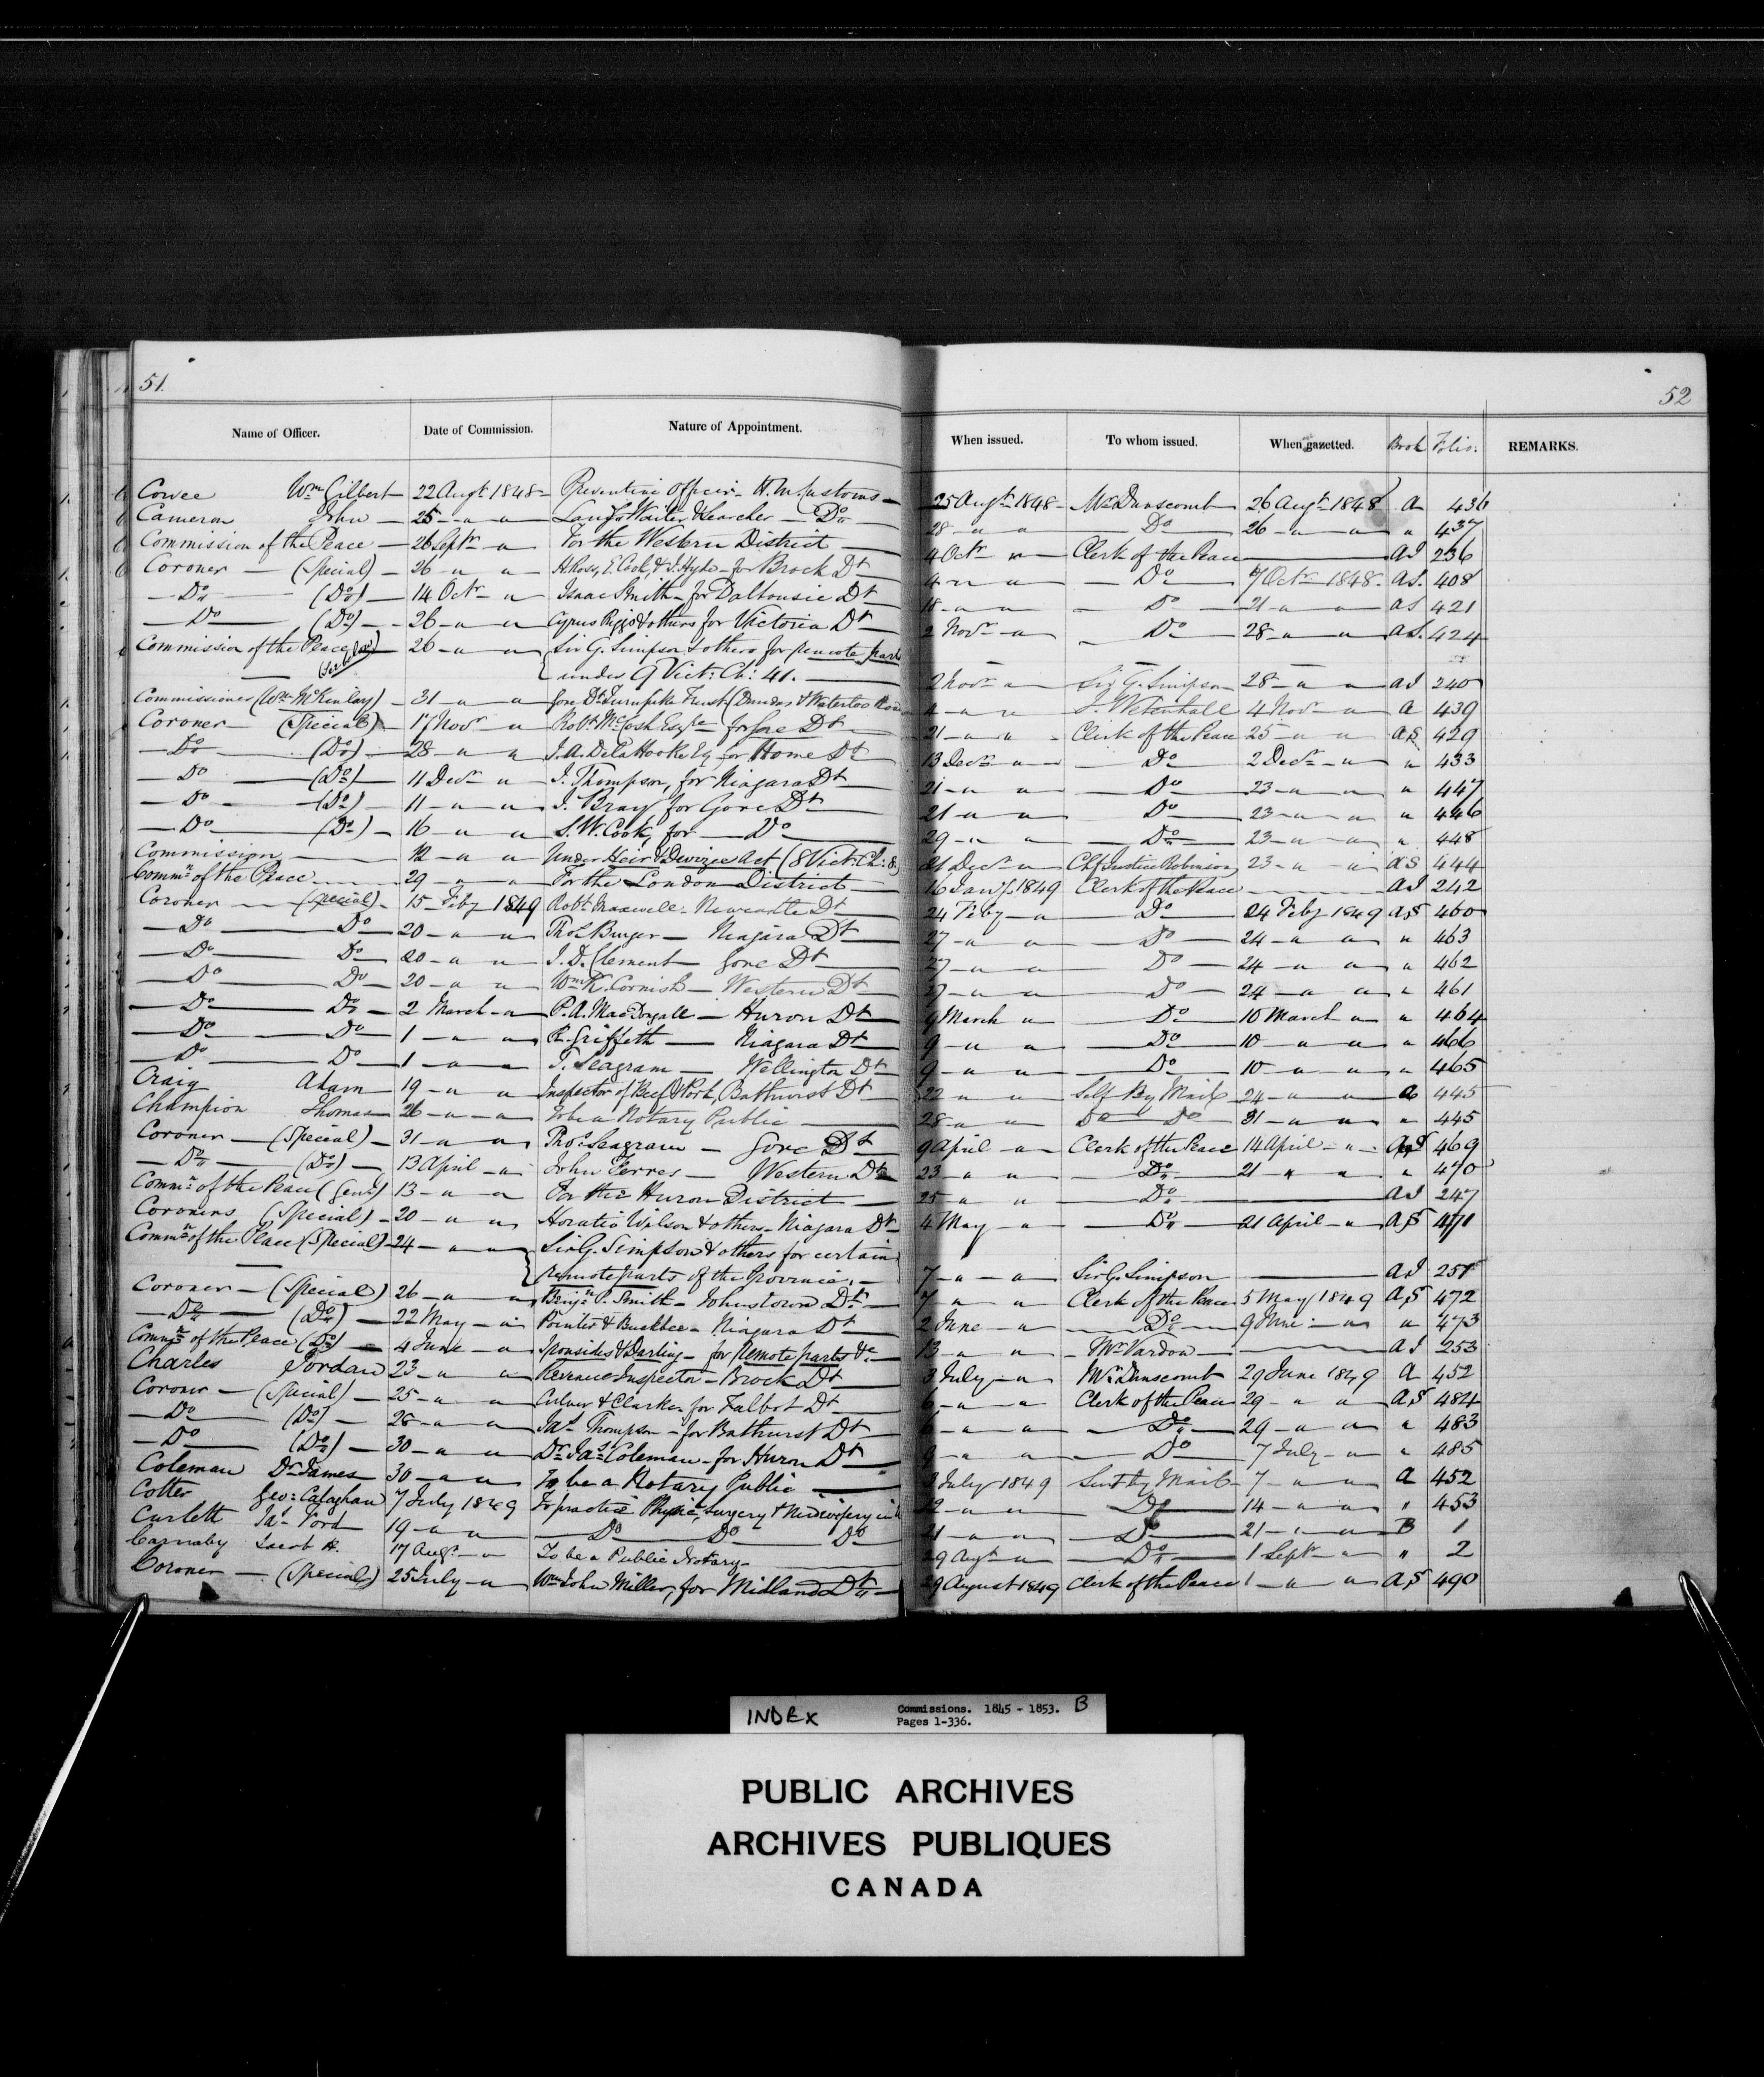 51.
52
Name of Officer. Date of Commission. Nature of Appointment. When issued. To whom issued. When gazetted. Book Folio. REMARKS.
Cowee Wm Gilbert 22 Augt 1848 Preventive Officer - H.M. Customs 25 Augt 1848 Mr Dunscomb 26 Augt 1848 A 436
Cameron John 25 " " Landg Waiter & Searcher - Do 28 " " Do 26 " " " 437
Commission of the Peace 26 Septr " For the Western District 4 Octr " Clerk of the Peace AJ 236
Coroner (Special) 26 " " H. Ross, E. Cook, & J. Hyde - for Brock Dt 4 " " Do 7 Octr 1848. AS. 408
Do (Do) 14 Octr " Isaac Smith - for Dalhousie Dt 18 " " Do 21 " " AS 421
Do (Do) 26 " " Cyrus Riggs & others for Victoria Dt 2 Novr " Do 28 " " AS. 424
Commission of the Peace 26 " " Sir G. Simpson & others for remote parts
under 9 Vict: Ch: 41. 2 Novr " Sir G. Simpson 28 " " AJ 240
Commissioner (Wm McKinlay) 31 " " Gore Dt Turnpike Trust (Dundas & Waterloo Road 4 " " Wetenhall 4 Novr " A 439
Coroner (Special) 17 Novr " Robt McCosh Esqre for Gore Dt 21 " " Clerk of the Peace 25 " " AS 429
Do (Do) 28 " " J.A. De La Hooke Esq for Home Dt 13 Decr " Do 2 Decr " " 433
Do (Do) 11 Decr " J. Thompson, for Niagara Dt 21 " " Do 23 " " " 447
Do (Do) 11 " " J. Bray for Gore Dt 21 " " Do 23 " " " 446
Do (Do) 16 " " S.W. Cook, for Do 29 " " Do 23 " " " 448
Commission 12 " " Under Heir & Devizee Act (8 Vict: Ch: 8) 21 Decr " Chf Justice Robinson 23 " " AS 444
Commn of the Peace 29 " " For the London District 16 Jany 1849 Clerk of the Peace AJ 242
Coroner (Special) 15 Feby 1849 Robt Maxwell - Newcastle Dt 24 Feby " Do 24 Feby 1849 AS 460
Do Do 20 " " Thos Burger - Niagara Dt 27 " " Do 24 " " " 463
Do Do 20 " " J.D. Clement Gore Dt 27 " " Do 24 " " " 462
Do Do 20 " " Wm K. Cornish - Western Dt 27 " " Do 24 " " " 461
Do Do 2 March " P.A. MacDougall - Huron Dt 9 March " Do 10 March " " 464
Do Do 1 " " Griffeth - Niagara Dt 9 " " Do 10 " " " 466
Do Do 1 " " T. Seagram - Wellington Dt 9 " " Do 10 " " " 465
Craig Adam 19 " " Inspector of Beef & Pork, Bathurst Dt 22 " " Self By Mail 24 " " A 445
Champion Thomas 26 " " To be a Notary Public 28 " " Do Do 31 " " " 445
Coroner (Special) 31 " " Thos Seagram - Gore Dt 9 April " Clerk of the Peace 14 April " AS 469
Do (Do) 13 April " John Ferres - Western Dt 23 " " Do 21 " " " 470
Commn of the Peace (Genl) 13 " " For the Huron District 25 " " Do AJ 247
Coroners (Special) 20 " " Horatio Wilson & others - Niagara Dt 4 May " Do 21 April " AS 471
Commn of the Peace (Special) 24 " " Sir G. Simpson & others for certain
remote parts of the Province. 7 " " Sir G. Simpson AJ 251
Coroner (Special) 26 " " Benjn P. Smith - Johnstown Dt 7 " " Clerk of the Peace 5 May 1849 AS 472
Do (Do) 22 May " & Buckbee - Niagara Dt 2 June " Do 9 June " " 473
Commn of the Peace (Do) 4 June " Ironsides & Darling - for remote parts &c 13 " " Mr Vardon AJ 253
Charles Jordan 23 " " Revenue Inspector - Brock Dt 3 July " Mr Dunscomb 29 June 1849 A 452
Coroner (Special) 25 " " Culver & Clarke - for Talbot Dt 6 " " Clerk of the Peace 29 " " AS 484
Do (Do) 28 " " Jas Thompson - for Bathurst Dt 6 " " Do 29 " " " 483
Do (Do) 30 " " Dr Jas Coleman - for Huron Dt 9 " " Do 7 July " " 485
Coleman Dr James 30 " " To be a Notary Public 3 July 1849 Sent by Mail 7 " " A 452
Cotter Geo: Calaghan 7 July 1849 To practice Physic, Surgery & Midwifery in 12 " " Do 14 " " " 453
Curlett Jas Ford 19 " " Do Do Do 21 " " Do 21 " " B 1
Carnaby Jacob H. 17 Augt " To be a Public Notary 29 Augt " Do 1 Septr " " 2
Coroner (Special) 25 July " Wm John Miller, for Midland Dt 29 August 1849 Clerk of the Peace 1 " " AS 490
INDEX Commissions. 1845 - 1853. B
Pages 1-336.
PUBLIC ARCHIVES
ARCHIVES PUBLIQUES
CANADA